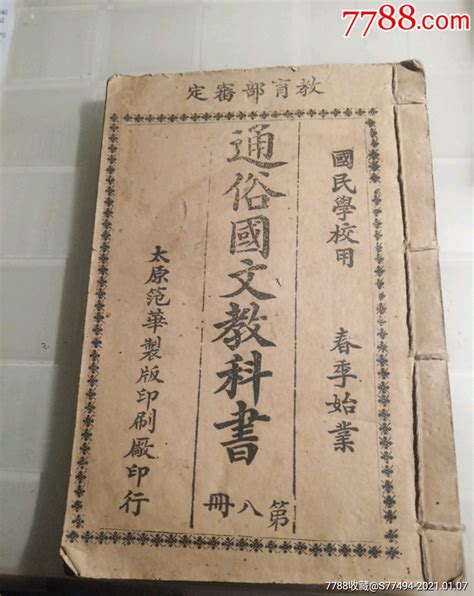 7788.com
教育部審定
國民學校用 春季始業
通俗國文教科書
第八冊
太原范華製版印刷廠印行
7788收藏@S77494-2021.01.07